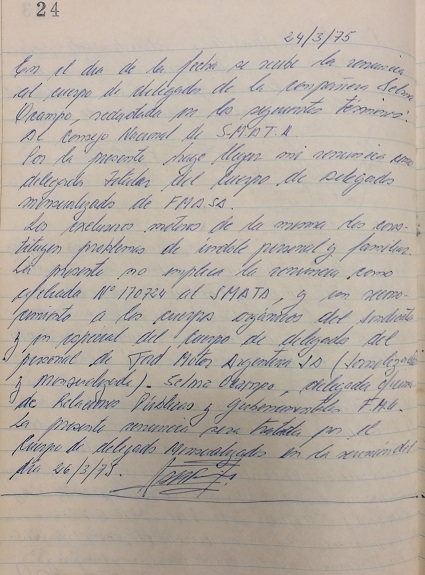 24
24/3/75
En el dia de la fecha se recibe la renuncia
del cuerpo de delegados de la compañera Selma
Ocampo, redactada en los siguientes términos:
Al Consejo Nacional de SMATA.
Por la presente hago llegar mi renuncia como
delegada Titular del Cuerpo de Delegados
mensualizados de FMASA.
Los exclusivos motivos de la misma los cons-
tituyen problemas de indole personal y familiar.
La presente no implica la renuncia como
afiliada Nº 170724 al SMATA, y un
a los cuerpos orgánicos del sindicato
y en especial del cuerpo de delegados del
personal de Ford Motor Argentina SA (Jornalizados
y Mensualizados). Selma Ocampo, delegada
de Relaciones Públicas y Gubernamentales FMA.
La presente renuncia sera tratada por el
Cuerpo de delegados mensualizados en la reunión del
dia 26/3/75.